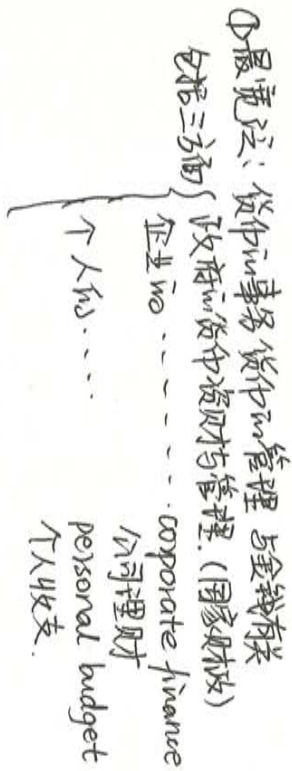 ①最宽泛：货币的事务 货币的管理 与金钱有关
包括三方面 { 政府的货币资财与管理.(国家财政)
企业的.......corporate finance
公司理财
个人的.....
personal budget
个人收支.